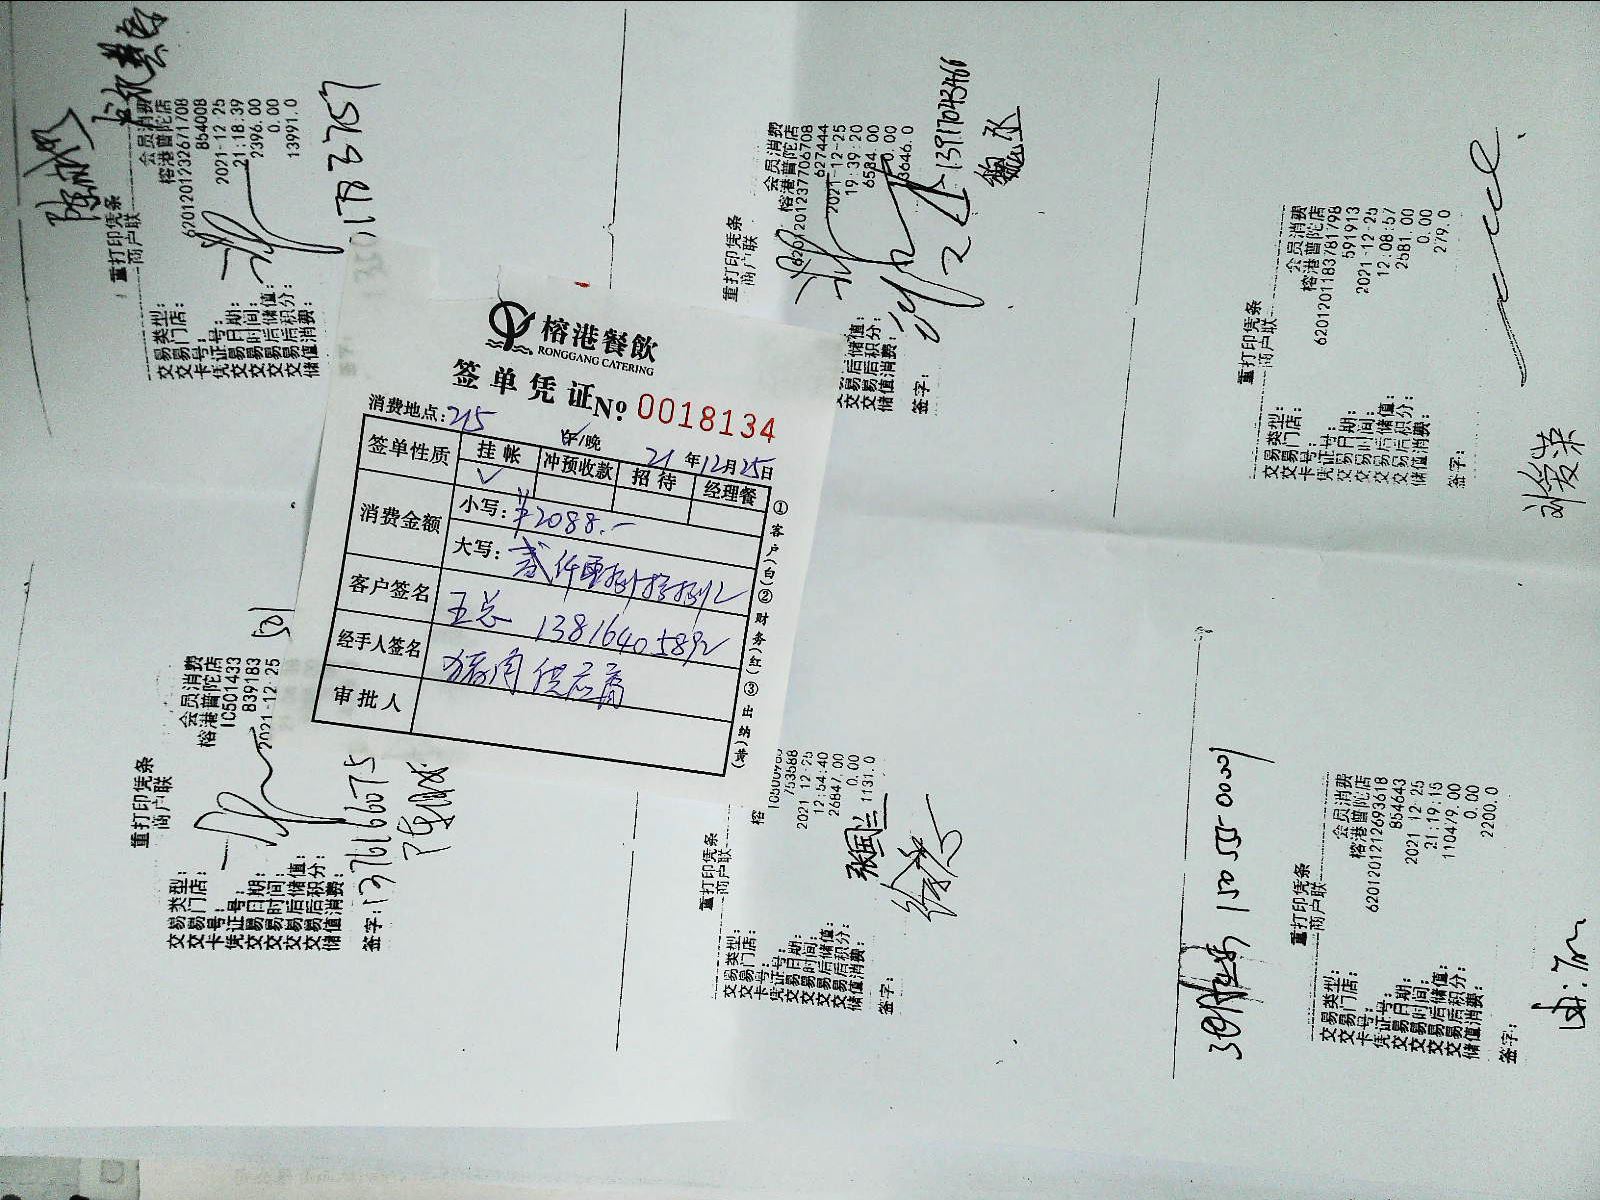 榕港餐飲
RONGGANG CATERING
签单凭证 No 0018134
消费地点: 215
午/晚 21年12月25日
签单性质 挂帐 冲预收款 招待 经理餐
✓
消费金额 小写: ¥2088.-
大写: 贰仟零捌拾捌
客户签名 王总 13816405892
经手人签名 猪肉供应商
审批人
①客户(白)②财务(红)③
重打印凭条
商户联
交易类型: 会员消费
交易门店: 榕港普陀店
卡号: 6201201232671708
凭证号: 854008
交易日期: 2021-12-25
交易时间: 21:18:39
交易后储值: 2396.00
交易后积分: 0.00
储值消费: 13991.0
重打印凭条
商户联
会员消费
榕港普陀店
6201201237706708
627444
2021-12-25
19:39:20
交易后储值: 6584.00
交易后积分: 0.00
储值消费: 3646.0
签字:
13917043466
重打印凭条
商户联
交易类型: 会员消费
交易门店: 榕港普陀店
卡号: 6201201183781798
凭证号: 591913
交易日期: 2021-12-25
交易时间: 12:08:57
交易后储值: 2581.00
交易后积分: 0.00
储值消费: 279.0
签字:
刘爱荣
重打印凭条
商户联
交易类型: 会员消费
交易门店: 榕港普陀店
卡号: IC501433
凭证号: 839183
交易日期: 2021-12-25
交易时间:
交易后储值:
交易后积分:
储值消费:
签字: 13761616075
重打印凭条
商户联
交易类型:
交易门店: 榕
卡号:
凭证号: 753588
交易日期: 2021-12-25
交易时间: 12:54:40
交易后储值: 26847.00
交易后积分: 0.00
储值消费: 1131.0
签字:
张国兰
重打印凭条
商户联
交易类型: 会员消费
交易门店: 榕港普陀店
卡号: 6201201212693618
凭证号: 854643
交易日期: 2021-12-25
交易时间: 21:19:15
交易后储值: 110479.00
交易后积分: 0.00
储值消费: 2200.0
签字: